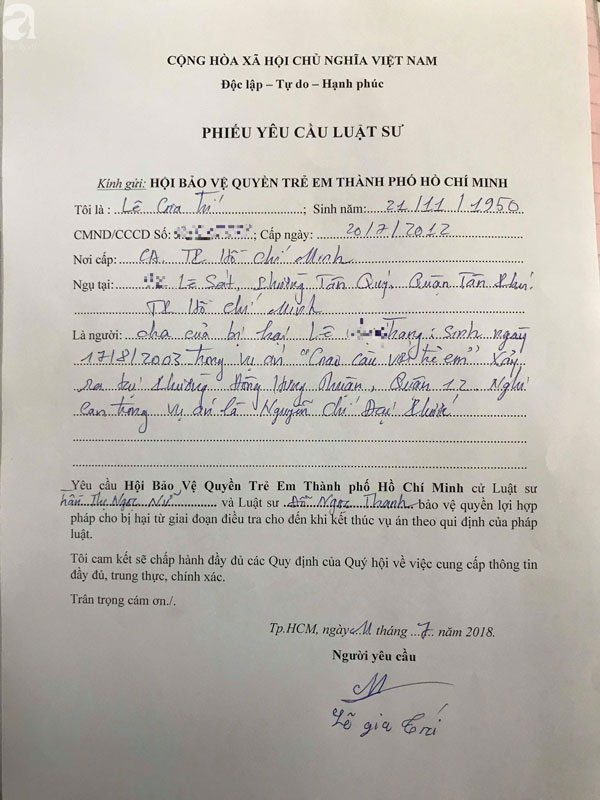 a
CỘNG HÒA XÃ HỘI CHỦ NGHĨA VIỆT NAM
Độc lập – Tự do – Hạnh phúc
PHIẾU YÊU CẦU LUẬT SƯ
Kính gửi: HỘI BẢO VỆ QUYỀN TRẺ EM THÀNH PHỐ HỒ CHÍ MINH
Tôi là : Lê Gia Trí ; Sinh năm: 21/11/1950
CMND/CCCD Số: ; Cấp ngày: 20/7/2012
Nơi cấp: CA. TP Hồ Chí Minh
Ngụ tại: Lê Sát, Phường Tân Quý, Quận Tân Phú.
TP Hồ Chí Minh
Là người: cha của bị hại Lê Thang; Sinh ngày
17/8/2003 trong vụ án "Giao cấu với trẻ em" Xảy
ra tại Phường Đông Hưng Thuận, Quận 12. Nghi
can trong vụ án là Nguyễn Chí Đại
Yêu cầu Hội Bảo Vệ Quyền Trẻ Em Thành phố Hồ Chí Minh cử Luật sư
Trần Thị Ngọc Nữ và Luật sư Đỗ Ngọc Thanh bảo vệ quyền lợi hợp
pháp cho bị hại từ giai đoạn điều tra cho đến khi kết thúc vụ án theo qui định của pháp
luật.
Tôi cam kết sẽ chấp hành đầy đủ các Quy định của Quý hội về việc cung cấp thông tin
đầy đủ, trung thực, chính xác.
Trân trọng cám ơn./.
Tp.HCM, ngày 11 tháng 7 năm 2018.
Người yêu cầu
Lê gia Trí